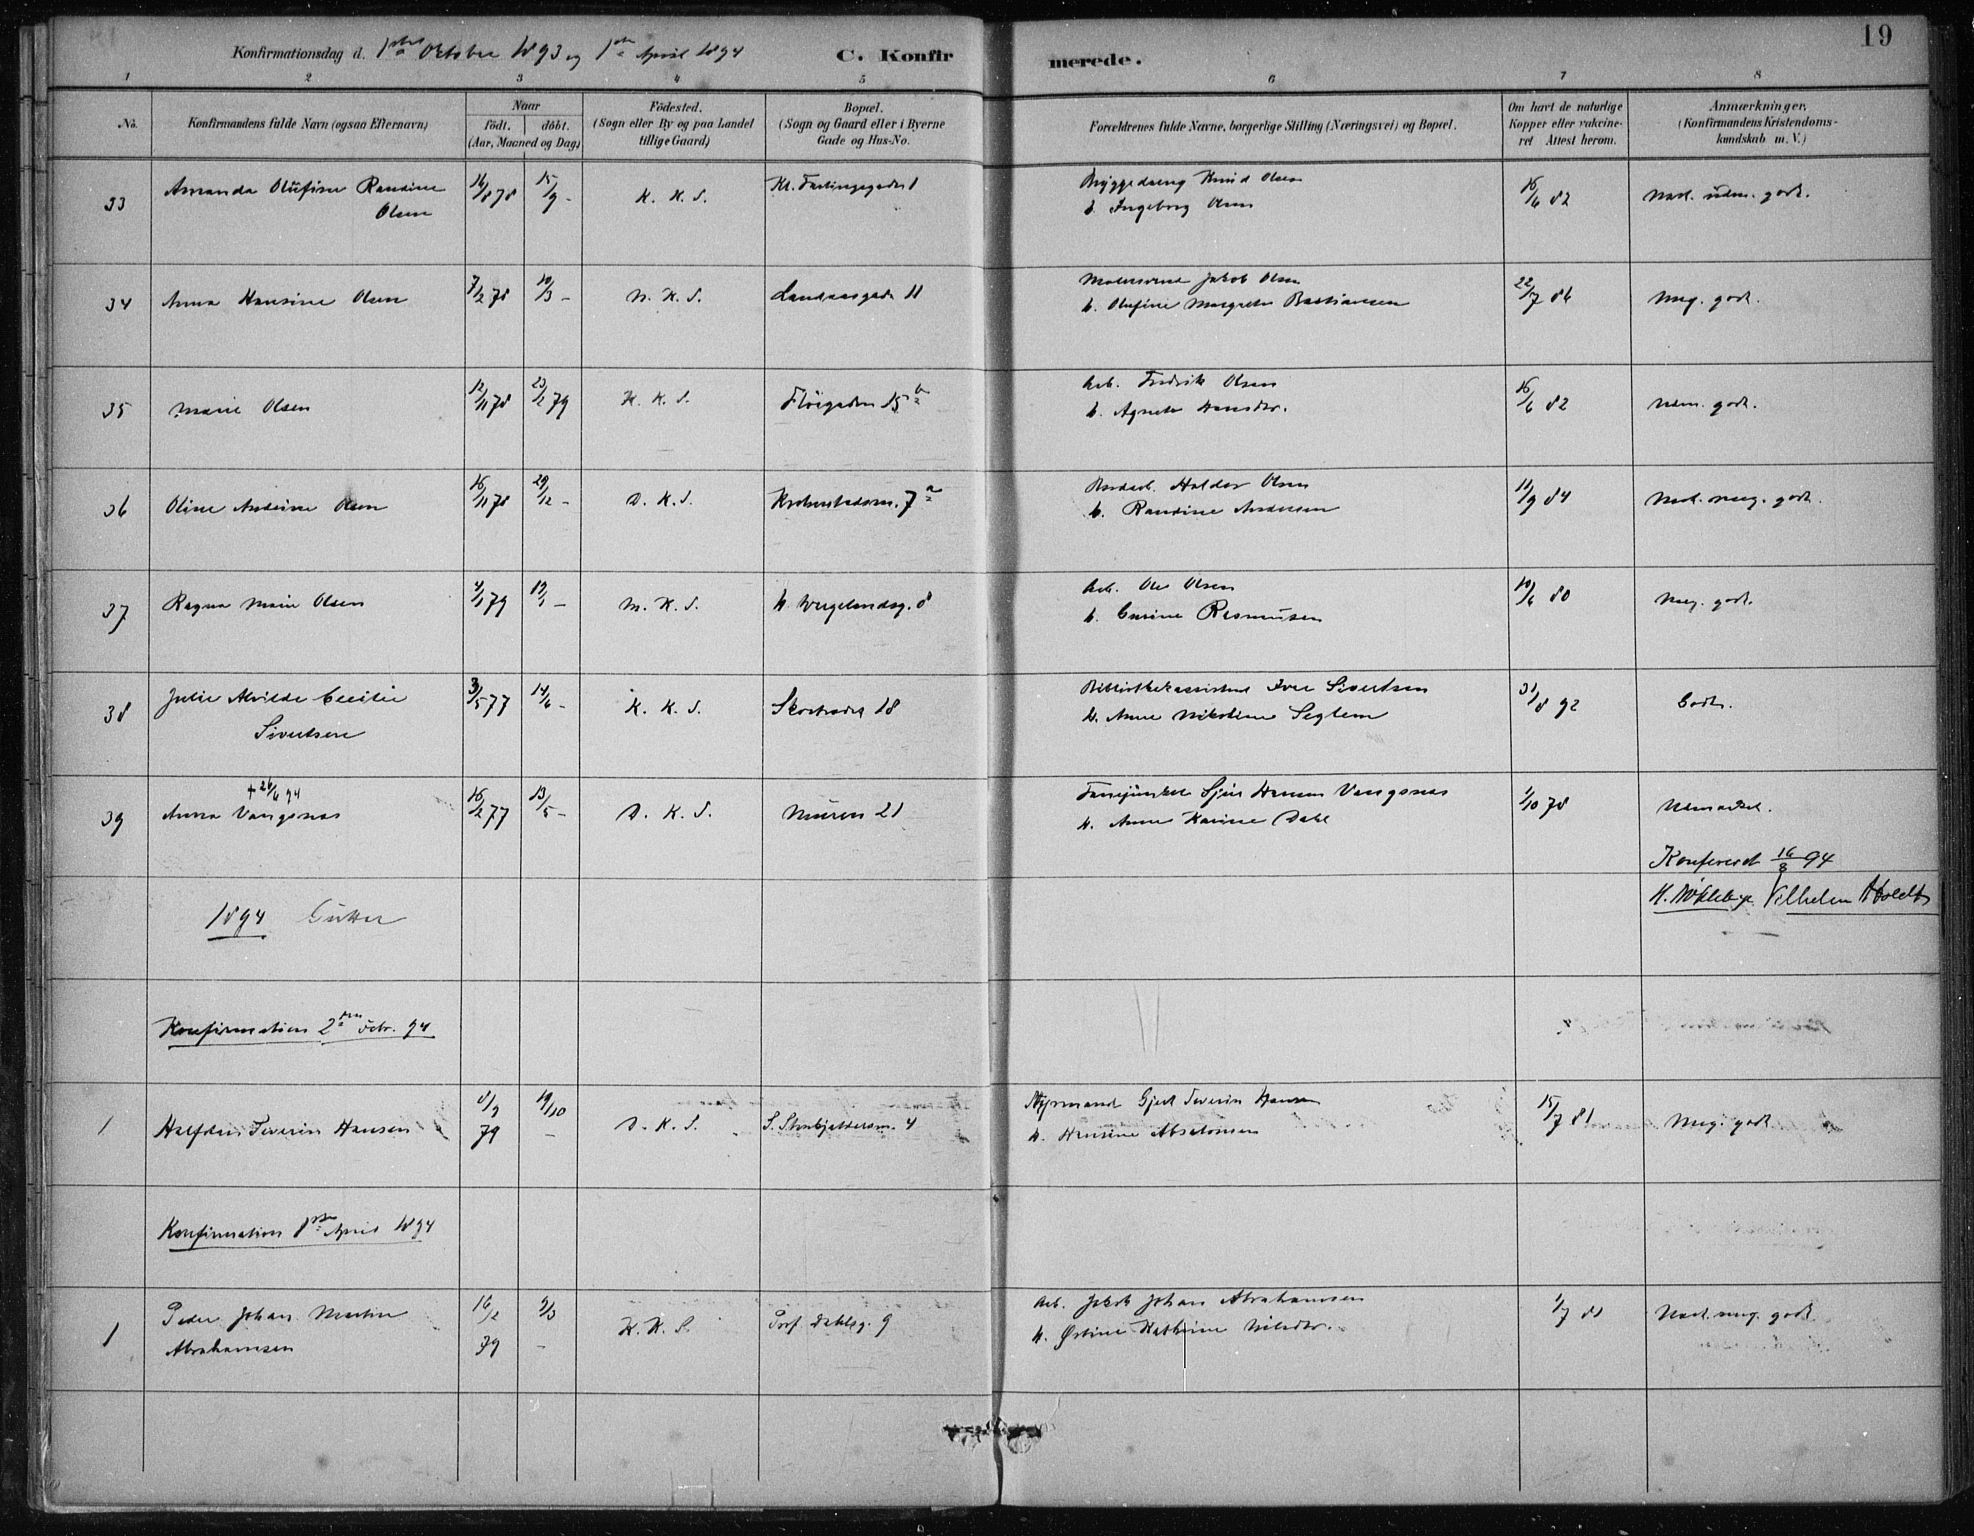 19
Konfirmationsdag d. 1ste Oktober 1893 og 1ste April 1894 C. Konfir merede.
1 2 3 4 5 6 7 8
No.
Konfirmandens fulde Navn (ogsaa Efternavn)
Naar
födt. döbt.
(Aar, Maaned og Dag)
Födested.
(Sogn eller By og paa Landet
tillige Gaard)
Bopæl.
(Sogn og Gaard eller i Byerne
Gade og Hus-No.
Forældrenes fulde Navne, borgerlige Stilling (Næringsvei) og Bopæl.
Om havt de naturlige
Kopper eller vakcine-
ret Attest herom.
Anmærkninger.
(Konfirmandens Kristendoms-
kundskab m. V.)
33 Amanda Olufine Randine 14/8 78 15/9 - K. K. S. Bryggedreng Knud Olsen 16/6 82 Næst. udm. godt.
Olsen h. Ingeborg Olsen
34 Anna Hansine Olsen 7/2 78 10/3 - N. K. S. Landaasgaden 11 Jakob Olsen 22/7 86 Meg. godt.
h. Olufine Margrete Bastiansen
35 Marie Olsen 12/11 78 23/2 79 K. K. S. Fløigaden 15 b Arb. Fredrik Olsen 16/6 82 Udm. godt.
h. Agnete Hansdtr.
36 Oline Andrine Olsen 16/11 78 29/12 - D. K. S. 7 a Halder Olsen 11/9 84 Næst. meg. godt.
h. Randine Andersen
37 Ragna Marie Olsen 4/1 79 19/1 - M. K. S. H. Wergelandsg. 8 Arb. Ole Olsen 10/6 80 Meg. godt.
h. Rasmussen
38 Julie Alvilde Cecilie 3/5 77 14/6 - K. K. S. Skostrædet 18 Bibliothekassistent Iver Sivertsen 31/8 92 Godt.
Sivertsen h. Anne Nikoline Seglem
+ 26/6 94
39 Anna Vangsnæs 16/2 77 13/5 - D. K. S. Muren 21 Fanejunker Sjur Hansen Vangsnæs 1/10 78 Udmærket.
h. Anne Karine Dahl
Konfereret 16/8 94
Vilhelm Holdt
1894 Gutter
Konfirmation 2den Febr. 94
1 Halfdan Severin Hansen 8/9 79 19/10 - D. K. S. 4 Styrmand Gjert Severin Hansen 15/7 81 Meg. godt.
h. Hansine Absalonsen
Konfirmation 1ste April 1894
1 Peder Johan Martin 16/2 79 9/3 - K. K. S. Prof. Dahlsg. 9 Arb. Jakob Johan Abrahamsen 1/7 81 Næst. meg. godt.
Abrahamsen h. Østine Kathrine Nilsdtr.